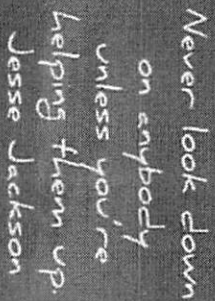 Never look down
on anybody
unless you're
helping them up.
Jesse Jackson